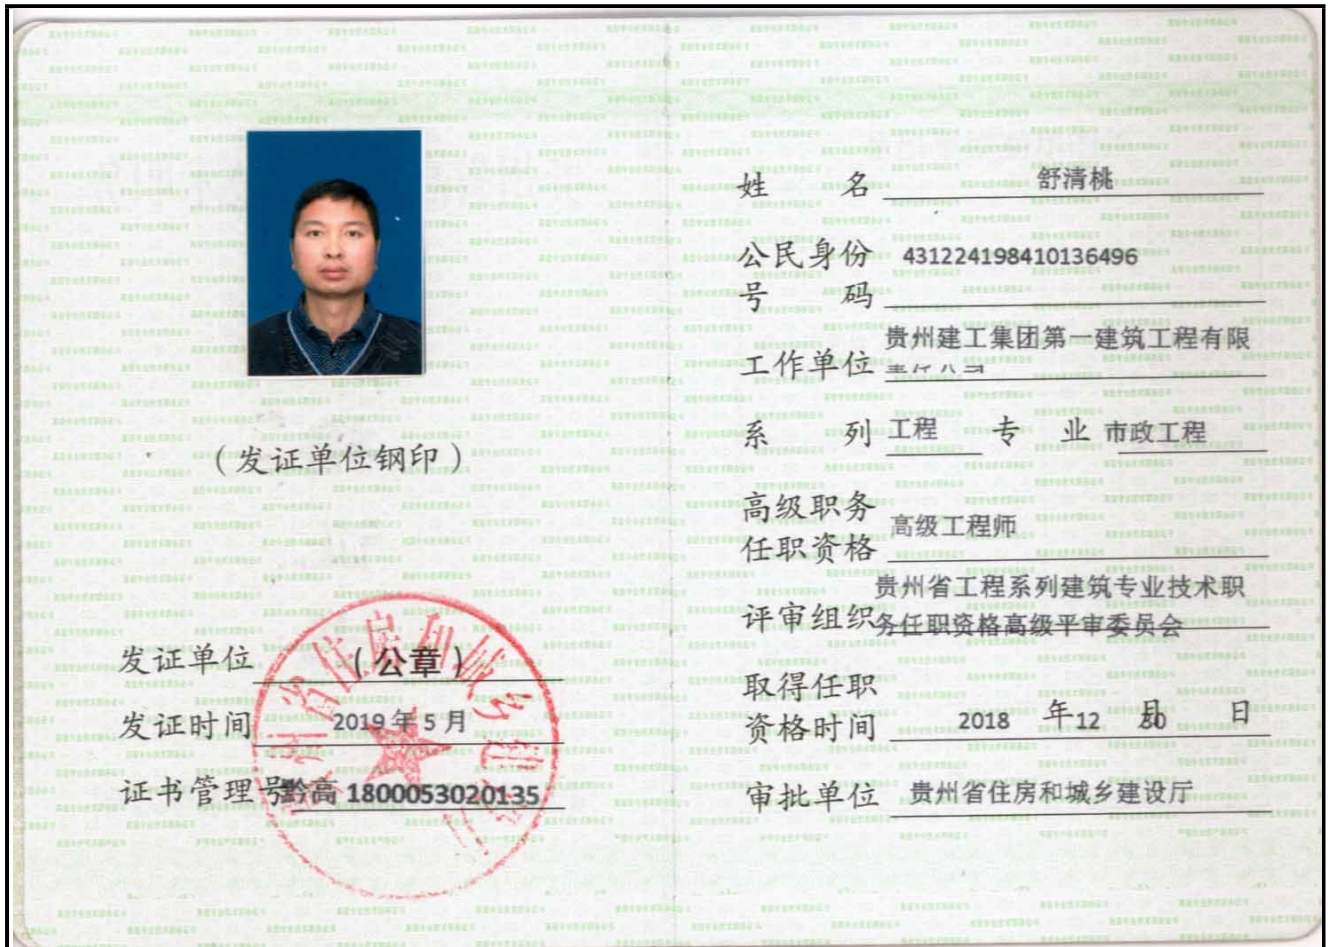 （发证单位钢印）
发证单位 （公章）
发证时间 2019 年 5 月
证书管理号黔高 1800053020135
姓 名 舒清桃
公民身份 431224198410136496
号 码
贵州建工集团第一建筑工程有限
工作单位 责任公司
系 列 工程 专 业 市政工程
高级职务
任职资格 高级工程师
贵州省工程系列建筑专业技术职
评审组织 务任职资格高级平审委员会
取得任职
资格时间 2018 年 12 月 30 日
审批单位 贵州省住房和城乡建设厅